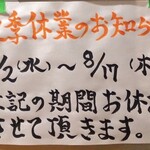 季休業のお知ら
/2(水)~8/17(木
記の期間お休
させて頂きます。